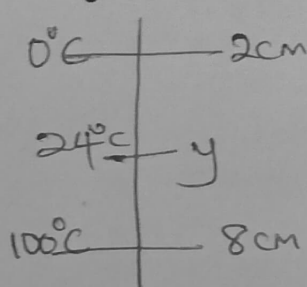 0°C 2cm
24°C y
100°C 8cm